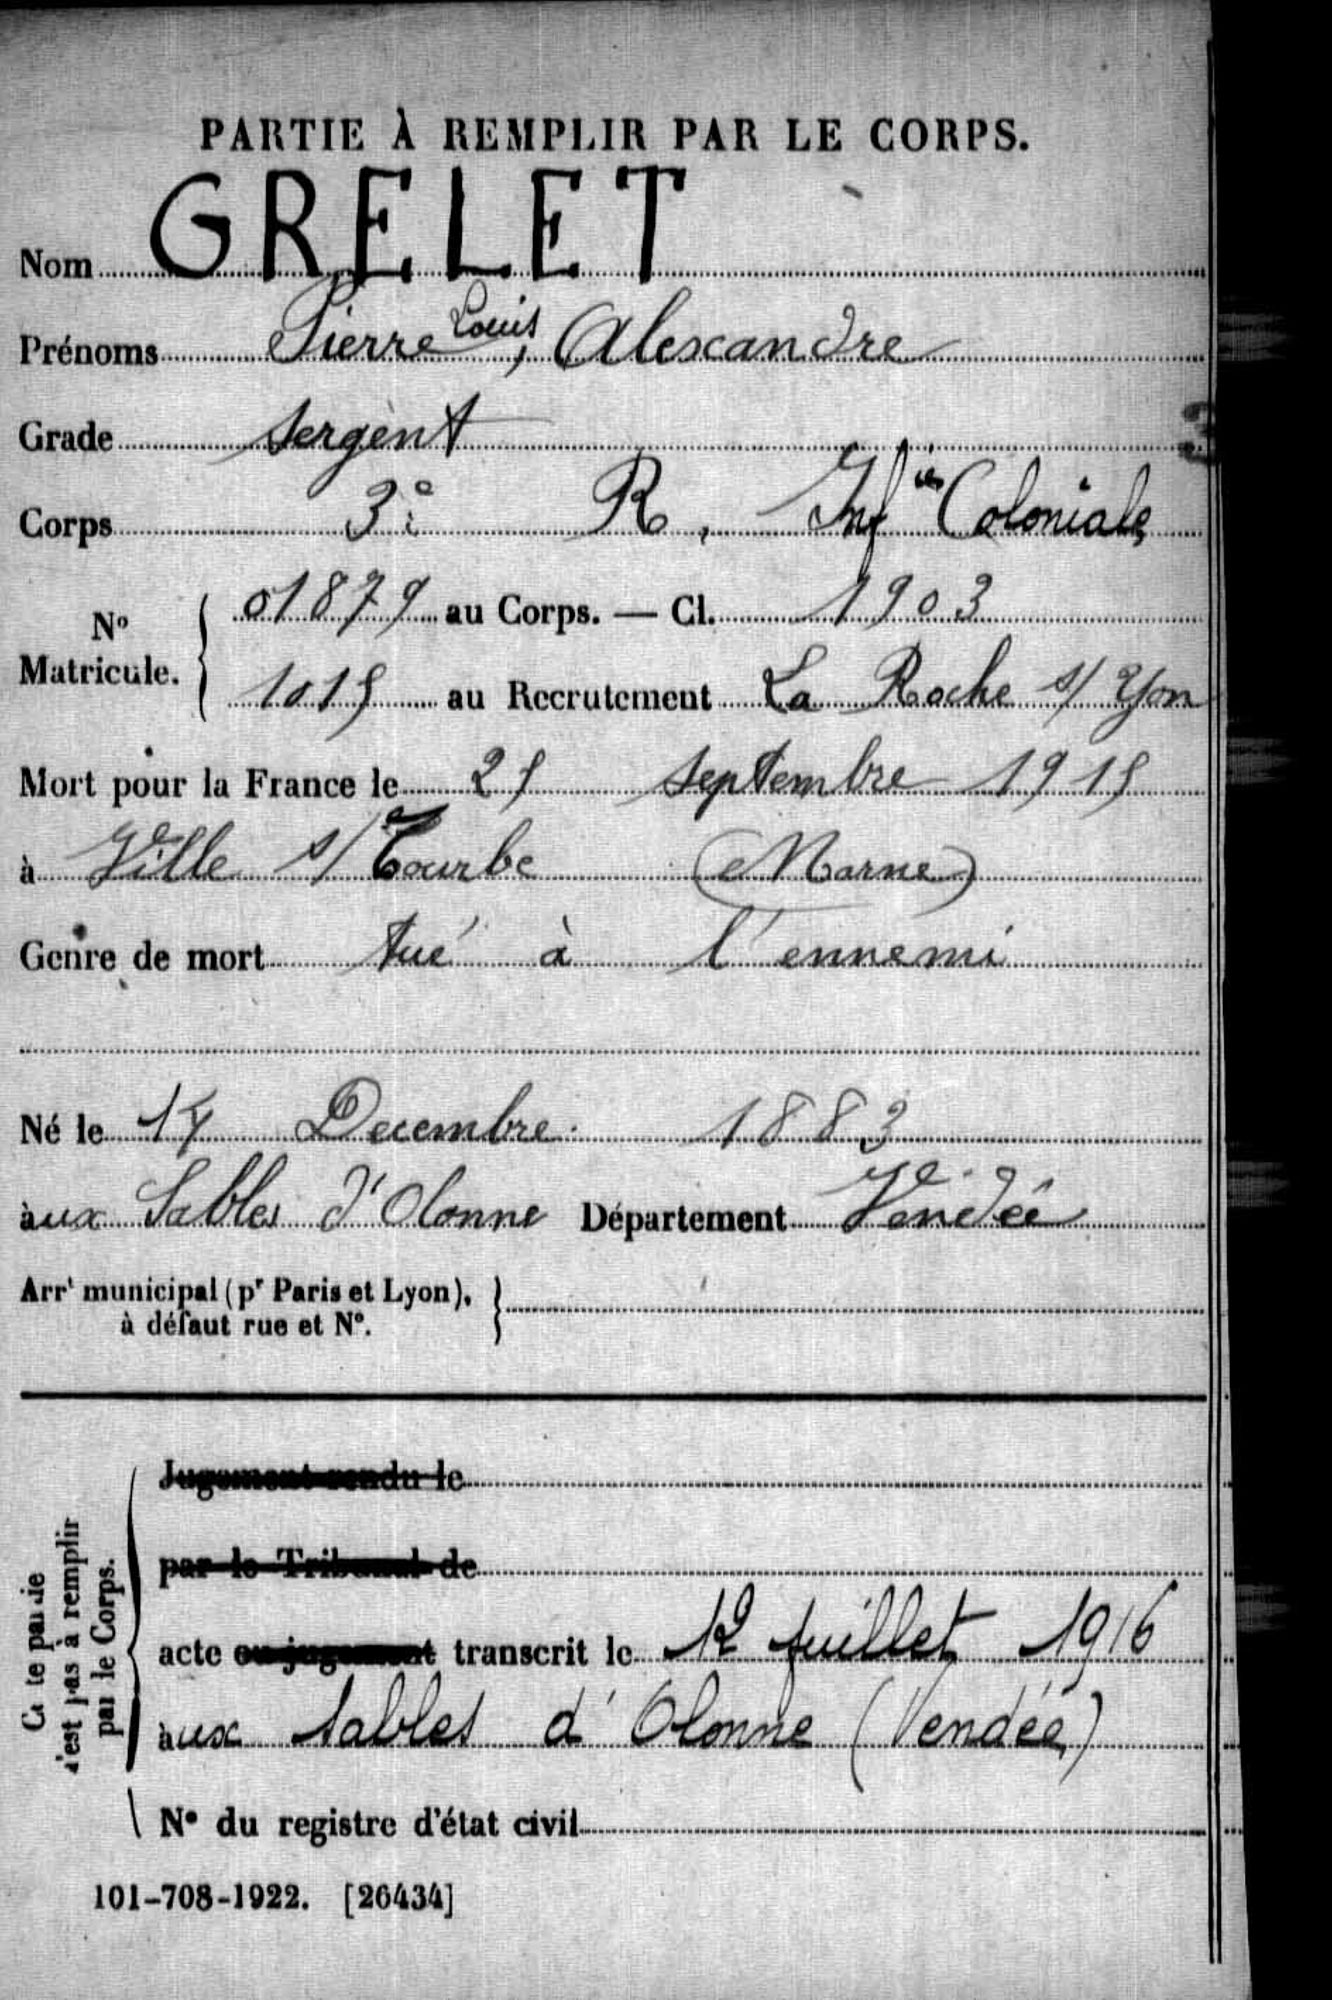 PARTIE À REMPLIR PAR LE CORPS.
Nom GRELET
Prénoms Pierre Louis, Alexandre
Grade sergent
Corps 3e R. Infie Coloniale
No Matricule. { 01879 au Corps. — Cl. 1903
1015 au Recrutement La Roche s/ Yon
Mort pour la France le 25 septembre 1915
à Ville s/ Tourbe (Marne)
Genre de mort tué à l'ennemi
Né le 14 Decembre 1883
àux Sables d'Olonne Département Vendée
Arrt municipal (pr Paris et Lyon), à défaut rue et No. }
Cette partie n'est pas à remplir par le Corps.
Jugement rendu le
par le Tribunal de
acte ou jugement transcrit le 12 Juillet 1916
àux Sables d'Olonne (Vendée)
No du registre d'état civil
101-708-1922. [26434]